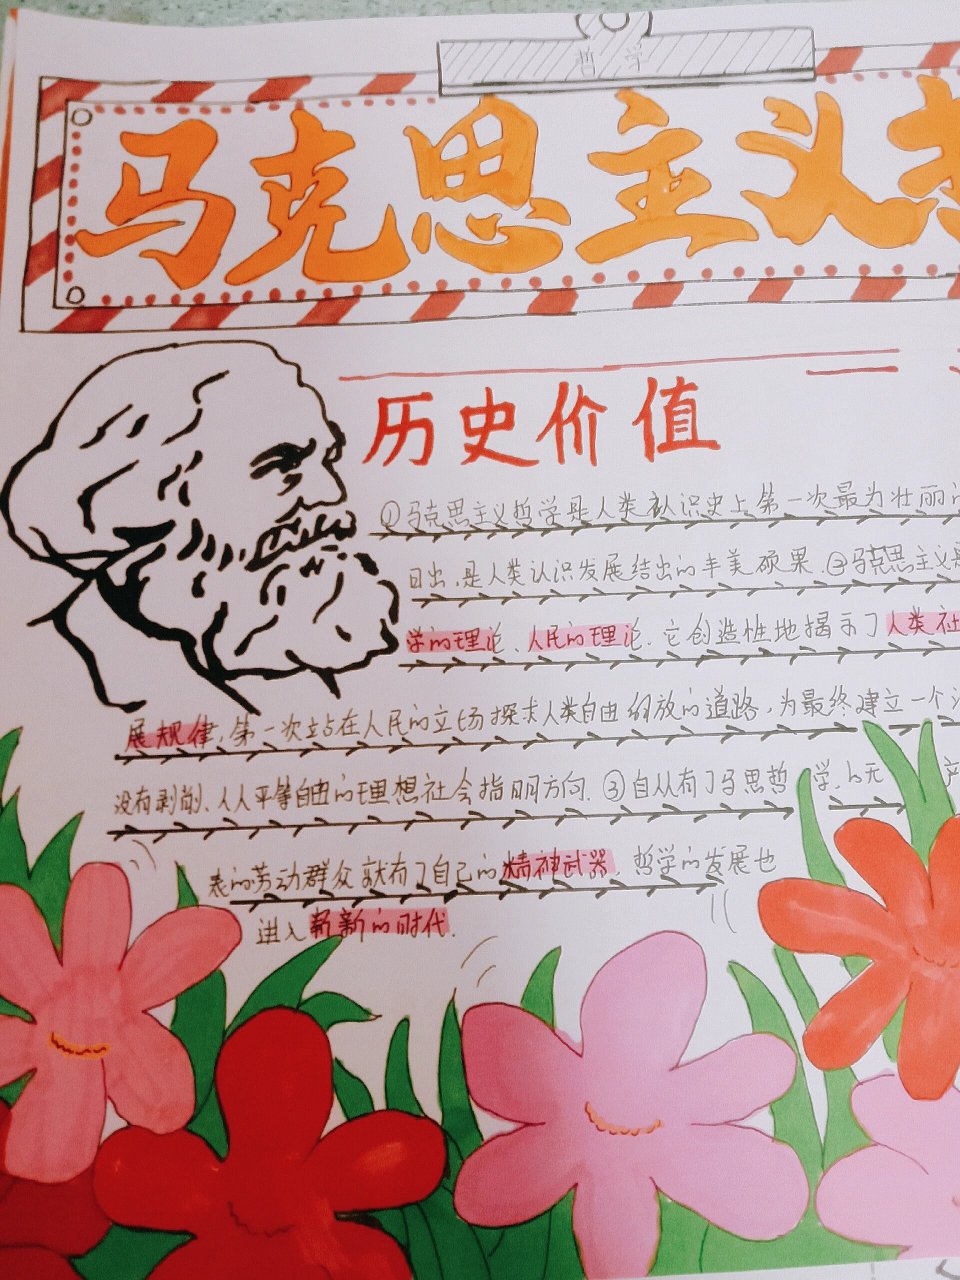 哲学
马克思主义
历史价值
①马克思主义哲学是人类认识史上第一次最为壮丽的
日出,是人类认识发展结出的丰美硕果.②马克思主义是
学的理论、人民的理论.它创造性地揭示了人类社
展规律,第一次站在人民的立场探求人类自由解放的道路,为最终建立一个没
没有剥削、人人平等自由的理想社会指明方向.③自从有了马思哲学,无产
表的劳动群众就有了自己的精神武器,哲学的发展也
进入崭新的时代.